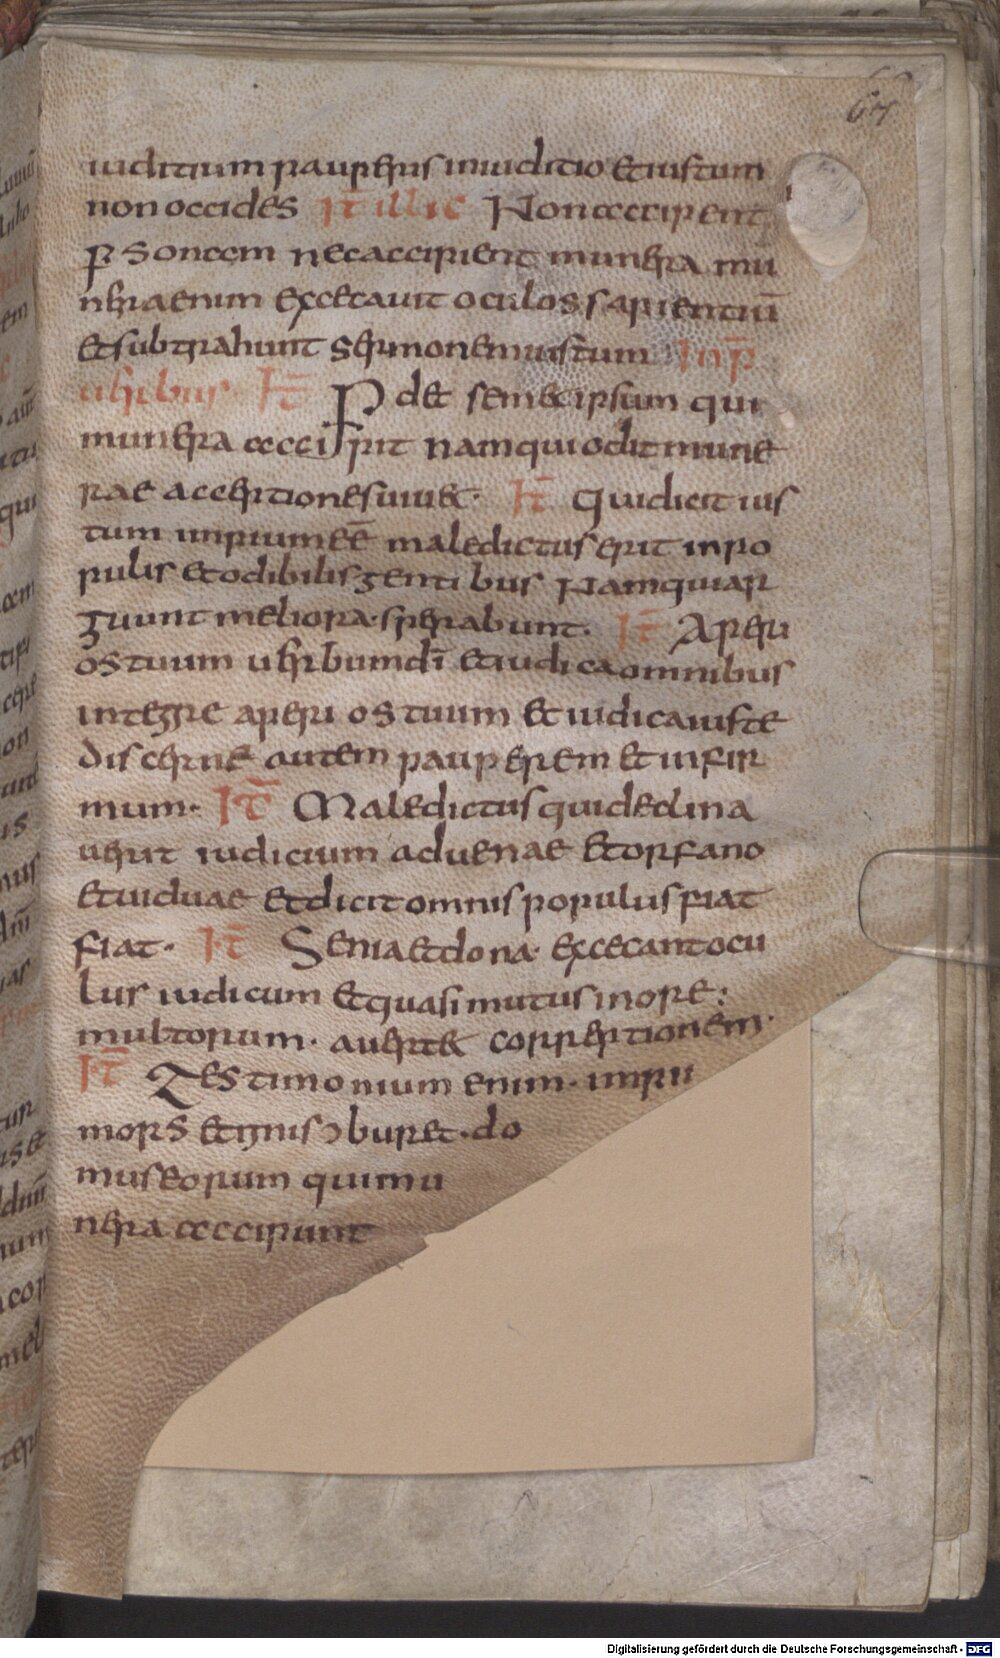 67
iuditium pauperis in iuditio et iustum
non occides It illic Non accipient
p̱sonam nec accipient munera mu
nera enim excecauit oculos sapientiū
et subtrahunt sermonem iustum In p̱
uerbiis It̄ P̱det semetipsum qui
munera accipit nam qui odit mune
rae acceptiones uiuet· It̄ Qui dicit ius
tum impium eē maledictus erit in po
pulis et odibilis gentibus Nam qui ar
guunt meliora· sperabunt· It̄ Aperi
os tuum uerbum dī et iudica omnibus
integre aperi os tuum et iudica iuste
discerne autem pauperem et infir
mum· It̄ Maledictus qui declina
uerit iudicium aduenae et orfano
et uiduae et dicit omnis populus fiat
fiat· It̄ Senia et dona· excecant ocu
lus iudicum et quasi mutus in ore:
multorum· auertet correptionem·
It̄ Testimonium enim· impii
mors et ignis ɔburet· do
mus eorum qui mu
nera accipiunt
Digitalisierung gefördert durch die Deutsche Forschungsgemeinschaft - DFG